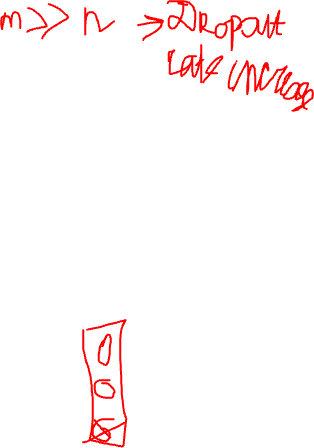 m >> n => Dropout
rate increase